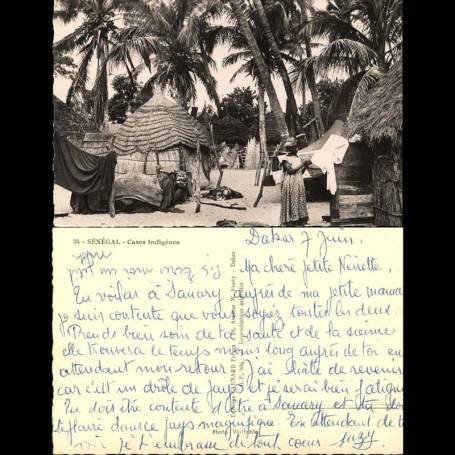 35 - SÉNÉGAL - Cases Indigènes
Dakar 7 Juin.
Ma chère petite Nénette,
Tu voilas à Sanary auprès de ma petite maman
je suis contente que vous soyez toutes les deux.
Prends bien soin de ta santé et de la sienne
elle trouvera le temps moins long auprès de toi en
attendant mon retour. J'ai hâte de revenir
car c'est un drôle de pays et je serai bien fatiguée
Tu dois être contente d'être à Sanary et
dans ce pays magnifique. En attendant de te
voir je t'embrasse de tout coeur Suzy.
P.S. Bon
Photo Véritable
Dakar